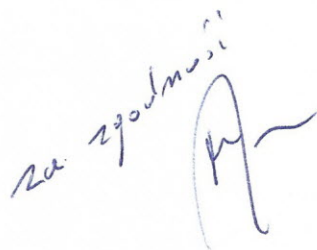 za zgodność